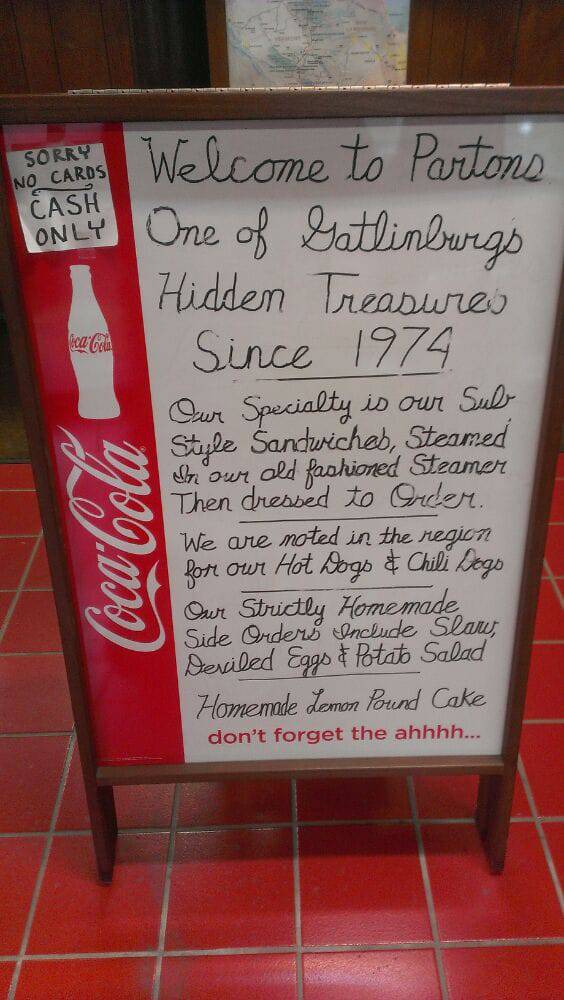 SORRY
NO CARDS
CASH
ONLY
Coca-Cola
Coca-Cola
Welcome to Partons
One of Gatlinburgs
Hidden Treasures
Since 1974
Our Specialty is our Sub
Style Sandwiches, Steamed
In our old fashioned Steamer
Then dressed to Order.
We are noted in the region
for our Hot Dogs & Chili Dogs
Our Strictly Homemade
Side Orders Include Slaw,
Deviled Eggs & Potato Salad
Homemade Lemon Pound Cake
don't forget the ahhhh...